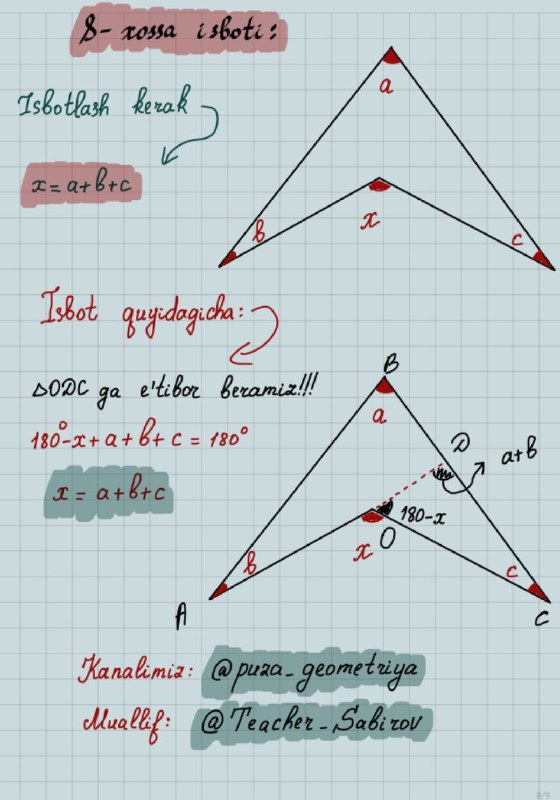 8-xossa isboti:
a
Isbotlash kerak
x=a+b+c
b
x
c
Isbot quyidagicha:
B
△ODC ga e'tibor beramiz!!!
a
180°-x+a+b+c=180°
D
a+b
x=a+b+c
180-x
x
O
b
c
A
C
Kanalimiz: @puza_geometriya
Muallif: @Teacher_Sabirov
8/9